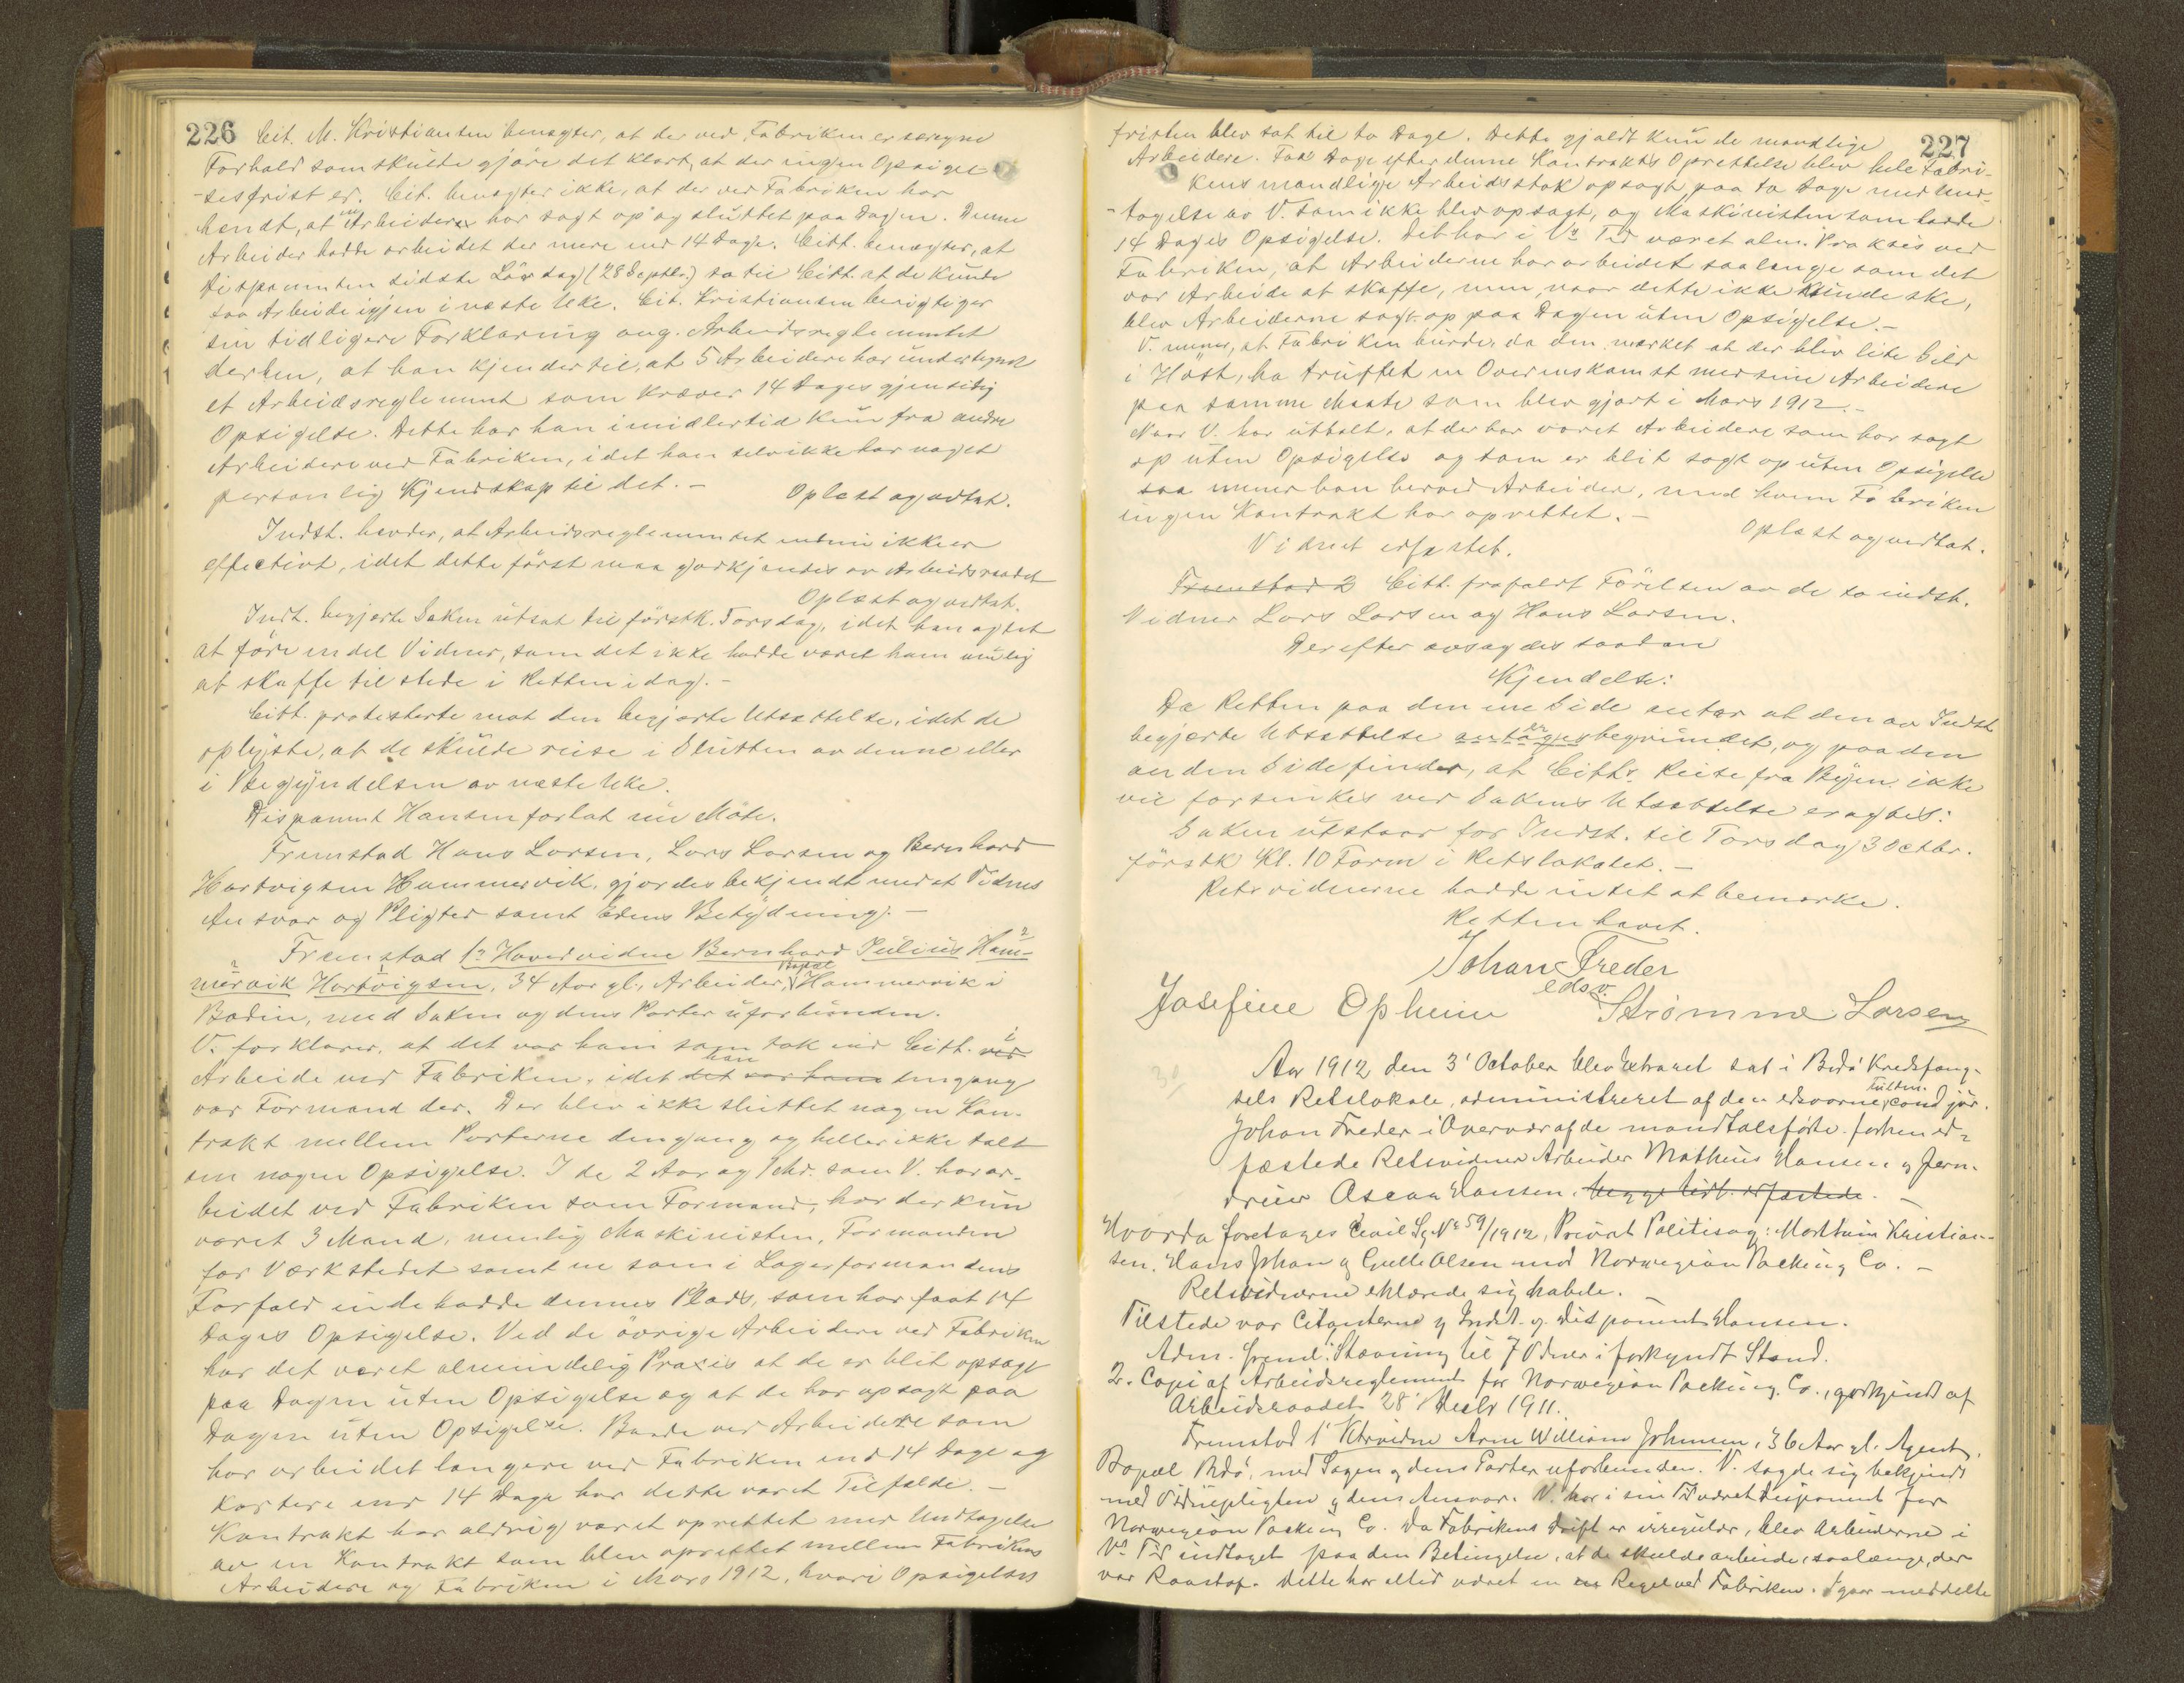 226
Cit. M. Kristiansen benegter, at der ved Fabriken er saregne
Forhold som skulde gjöre det klart, at der ingen Opsigel-
-sesfrist er. Cit. benegter ikke, at der ved Fabriken har
hendt, at en Arbeider har sagt op og sluttet paa Dagen. Denne
Arbeider hadde arbeidet der mere end 14 Dage. Citt. benegter, at
Disponenten sidste Lördag (28 Septbr.) sa til Citt. at de kunde
faa Arbeide igjen i næste Uke. Cit. Kristiansen berigtiger
sin tidligere Forklaring ang. Arbeidsreglementet
derhen, at han kjender til, at 5 Arbeidere har undertegnet
et Arbeidsreglement som kræver 14 Dages gjensidig
Opsigelse. Dette har han imidlertid kun fra andre
Arbeidere ved Fabriken, idet han selv ikke har noget
personlig Kjendskap til det. -
Oplæst og vedtat.
Indst. hevder, at Arbeidsreglementet endnu ikke er
effectivt, idet dette först maa godkjendes av Arbeidsraadet
Oplæst og vedtat.
Indst. begjærte Saken utsat til förstk. Torsdag, idet han agtet
at före en del Vidner, som det ikke hadde været ham mulig
at skaffe tilstede i Retten idag. -
Citt. protesterte mot den begjærte Utsættelse, idet de
oplyste, at de skulde reise i Slutten av denne eller
i Begyndelsen av næste Uke.
Disponent Hansen forlot nu Möte.
Fremstod Hans Larsen, Lars Larsen og Bernhard
Hartvigsen Hammervik, gjordes bekjendt med et Vidnes
Ansvar og Pligter samt Edens Betydning. -
Fremstod 1ste Hovedvidne Bernhard Julius Ham-
mervik Hartvigsen, 34 Aar gl., Arbeider, Bopæl Hammervik i
Bodin, med Saken og dens Parter uforbunden.
V. forklarer, at det var ham som tok ind Citt. ved i
Arbeide ved Fabriken, idet det var ham han dengang
var Formand der. Der blev ikke sluttet nogen Kon-
trakt mellem Parterne dengang og heller ikke talt
om nogen Opsigelse. I de 2 Aar og 7 Mdr. som V. har ar-
beidet ved Fabriken som Formand, har der kun
været 3 Mand, nemlig Maskinisten, Formanden
for Værkstedet samt en som i Lagerformandens
Forfald indehadde dennes Plads, som har faat 14
Dages Opsigelse. Ved de övrige Arbeidere ved Fabriken
har det været almindelig Praxis at de er blit opsagt
paa Dagen uten Opsigelse og at de har opsagt paa
Dagen uten Opsigelse. Baade ved Arbeidere som
har arbeidet længere ved Fabriken end 14 Dage og
kortere end 14 Dage har dette været Tilfælde. -
Kontrakt har aldrig været oprettet med Undtagelse
av en Kontrakt som blev oprettet mellem Fabrikens
Arbeidere og Fabriken i Mars 1912, hvori Opsigelses
227
fristen blev sat til to Dage. Dette gjaldt kun de mandlige
Arbeidere. Faa Dage efter denne Kontrakts Oprettelse blev hele Fabri-
kens mandlige Arbeidsstok opsagt paa to Dage med und-
-tagelse av V. som ikke blev opsagt, og Maskinisten som hadde
14 Dages Opsigelse. Det har i Vs Tid været alm. Praksis ved
Fabriken, at Arbeiderne har arbeidet saalenge som det
var Arbeide at skaffe, men, naar dette ikke kunde ske,
blev Arbeiderne sagt op paa Dagen uten Opsigelse. -
V. mener, at Fabriken burde, da den merket at der blev lite Sild
i Höst, ha truffet en Overenskomst med sine Arbeidere
paa samme Maate som blev gjort i Mars 1912. -
Naar V. har uttalt, at der har været Arbeidere som har sagt
op uten Opsigelse og som er blit sagt op uten Opsigelse
saa mener han herved Arbeidere, med hvem Fabriken
ingen Kontrakt har oprettet. -
Oplæst og vedtat.
Vidnet edfæstet.
Fremstod 2 Citt. frafaldt Förelsen av de to indst.
Vidner Lars Larsen og Hans Larsen.
Derefter avsagdes saadan
Kjendelse:
Da Retten paa den ene Side antar at den av Indst
begjærte Utsættelse er begrundet, og paa den
anden Side finder, at Citts. Reise fra Byen ikke
vil forsinkes ved Sakens Utsættelse eragtes:
Saken utstaar for Indst. til Torsdag 3 Octbr.
förstk Kl. 10 Form i Retslokalet. -
Retsvidnerne hadde intet at bemerke.
Retten hævet.
Johan Freder
edsv.
Josefine Opheim Strømme Larsen
Aar 1912 den 3' October blev Extraret sat i Bodö Kredsfæng-
sels Retslokale, administreret af den edsvorne fuldm. cand jur.
Johan Freder i Overvær af de mandtalsførte forhen ed-
fæstede Retsvidner Arbeider Mathæus Hansen og Jern-
dreier Oscar Hansen, begge tidl. edfæstede. -
Hvorda foretages Civil Sg. No 59/1912, Privat Politisag: Martinius Kristian-
sen, Hans Johan og Olsen mod Norwegian Packing Co. -
Retsvidnerne erklærede sig habile.
Tilstede var Citanterne og Indst. ved Disponent Hansen.
Adm. fremla: Stævning til 7 Vidner i forkyndt Stand.
2. Copi af Arbeidsreglement for Norwegian Packing Co., godkjendt af
Arbeidsraadet 28' Decbr 1911.
Fremstod 1' Vidne Arne William Johnsen, 36 Aar gl. Agent,
Bopæl Bodö, med Sagen og dens Parter uforbunden. V. sagde sig bekjendt
med Vidnepligten og dens Ansvar. V. har i sin Tid været Disponent for
Norwegian Packing Co. Da Fabrikens Drift er irregulær, blev Arbeiderne i
Vs Tid indtaget paa den Betingelse, at de skulde arbeide, saalænge, der
var Raastof. Dette har altid været en Regel ved Fabriken. Igaar meddelte